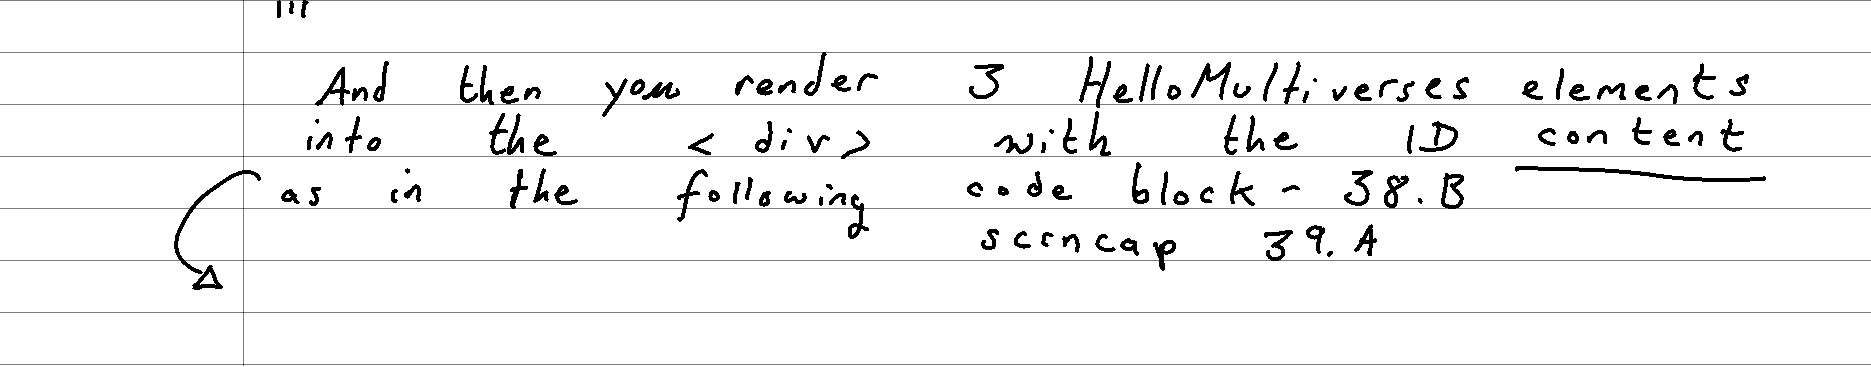 And then you render 3 HelloMultiverses elements
into the <div> with the ID content
as in the following code block - 38.B
scrncap 39.A